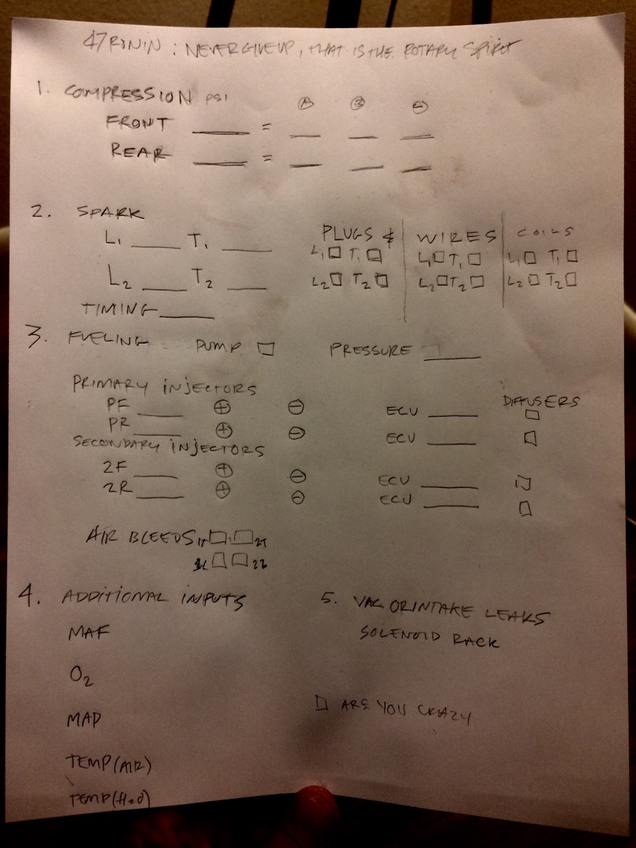 47 RONIN : NEVER GIVE UP, THAT IS THE ROTARY SPIRIT
1. COMPRESSION PSI A B C
FRONT ____ = ____ ____ ____
REAR ____ = ____ ____ ____
2. SPARK
L1 ____ T1 ____ PLUGS & WIRES COILS
L1 □ T1 □ L1 □ T1 □ L1 □ T1 □
L2 ____ T2 ____ L2 □ T2 □ L2 □ T2 □ L2 □ T2 □
TIMING ____
3. FUELING PUMP □ PRESSURE ____
PRIMARY INJECTORS DIFFUSERS
PF ____ + - ECU ____ □
PR ____ + - ECU ____ □
SECONDARY INJECTORS
2F ____ + - ECU ____ □
2R ____ + - ECU ____ □
AIR BLEEDS 1F □ □ 2F
□ □ 2R
4. ADDITIONAL INPUTS
MAF
O2
MAP
TEMP (AIR)
TEMP (H2O)
5. VAC OR INTAKE LEAKS
SOLENOID RACK
□ ARE YOU CRAZY